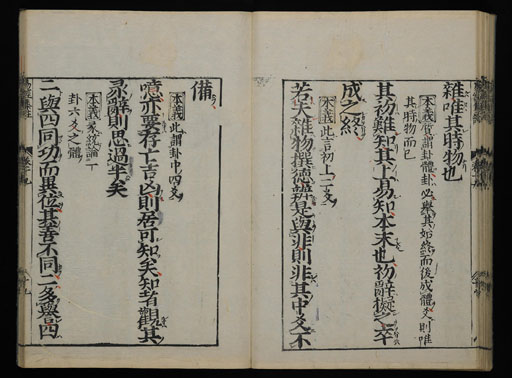 雜唯其時物也
本義質謂卦體卦必舉其始終而後成體爻則唯
其時物而已
其初難知其上易知本末也初辭擬之卒
成之終
本義此言初上二爻
若夫雜物撰德辨是與非則非其中爻不
備
本義此謂卦中四爻
噫亦要存亡吉凶則居可知矣知者觀其
彖辭則思過半矣
本義彖統論一
卦六爻之體
二與四同功而異位其善不同二多譽四